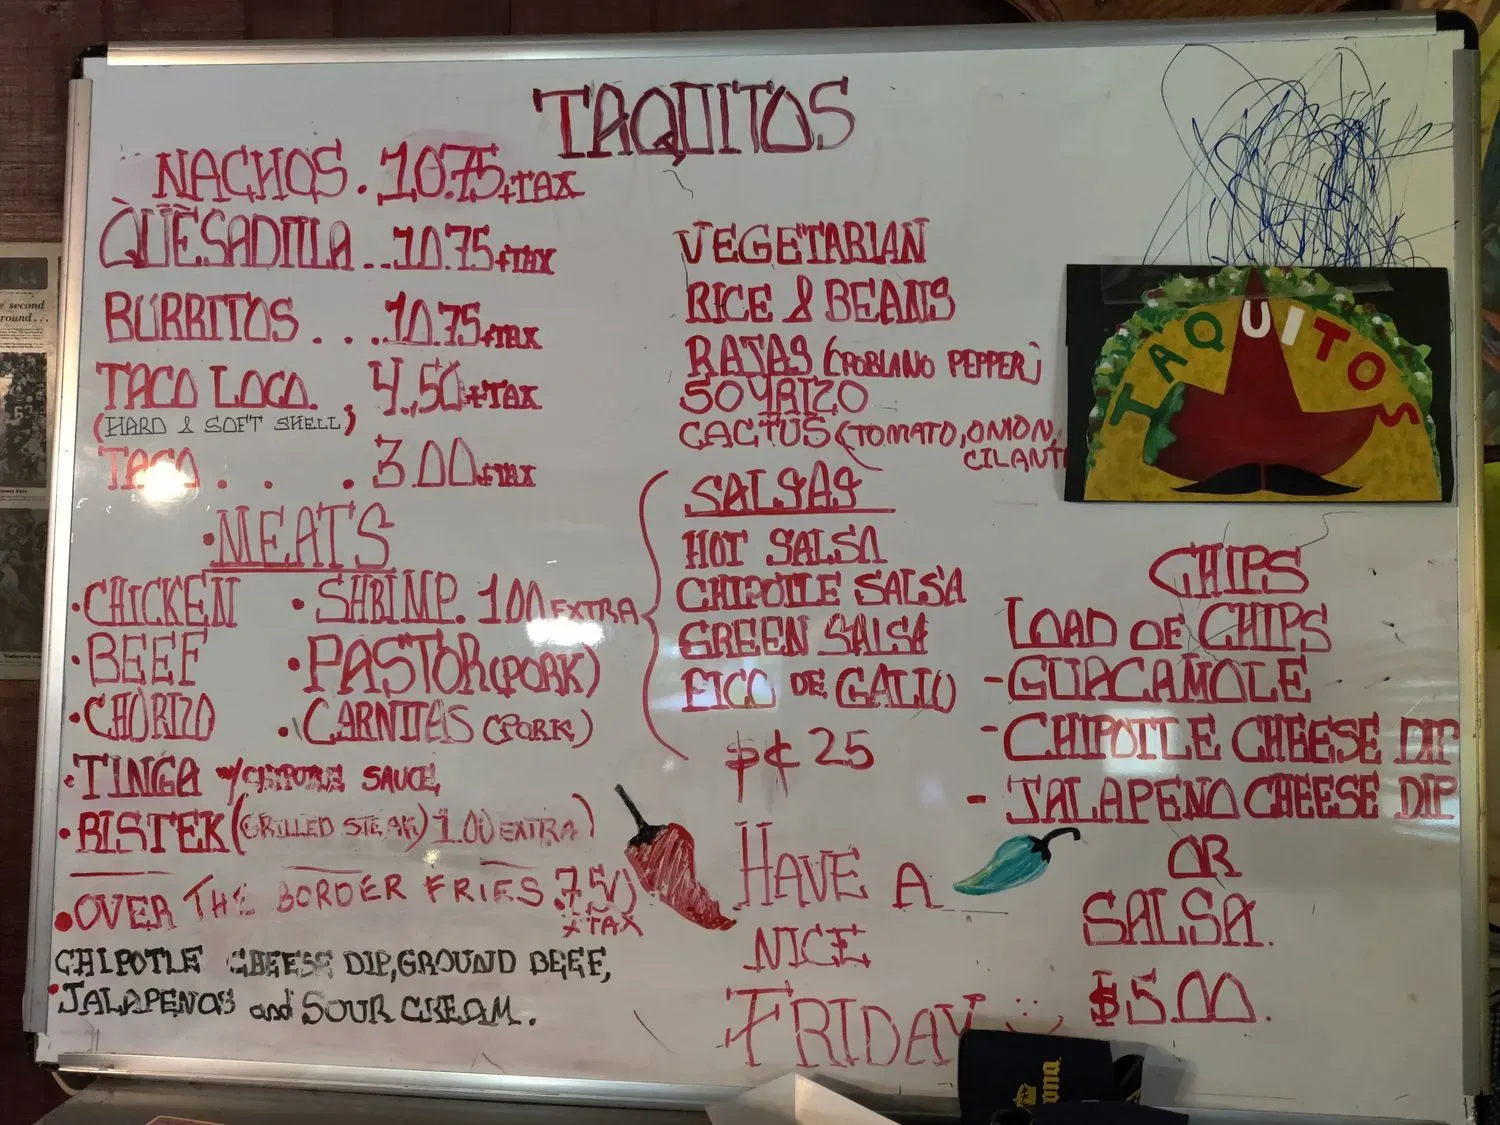 TAQUITOS
NACHOS. 10.75+TAX
QUESADILLA...10.75+TAX
BURRITOS...10.75+TAX
TACO LOCO. , 4.50+TAX
(HARD & SOFT SHELL)
TACO. . . 3.00+TAX
•MEATS
•CHICKEN
•BEEF
•CHORIZO
•SHRIMP. 1.00 EXTRA
•PASTOR (PORK)
•CARNITAS (PORK)
•TINGA w/CHIPOTLE SAUCE,
•BISTEK (GRILLED STEAK) 1.00 EXTRA)
•OVER THE BORDER FRIES .7.50)
+TAX
CHIPOTLE CHEESE DIP, GROUND BEEF,
JALAPENOS and SOUR CREAM.
VEGETARIAN
RICE & BEANS
RAJAS (POBLANO PEPPER)
SOYRIZO
CACTUS (TOMATO, ONION,
SALSAS
HOT SALSA
CHIPOTLE SALSA
GREEN SALSA
PICO DE GALLO
$¢ 25
HAVE A
NICE
FRIDAY :)
TAQUITOS
CHIPS
LOAD OF CHIPS
- GUACAMOLE
- CHIPOTLE CHEESE DIP
- JALAPENO CHEESE DIP
OR
SALSA.
$5.00.
e second
round...